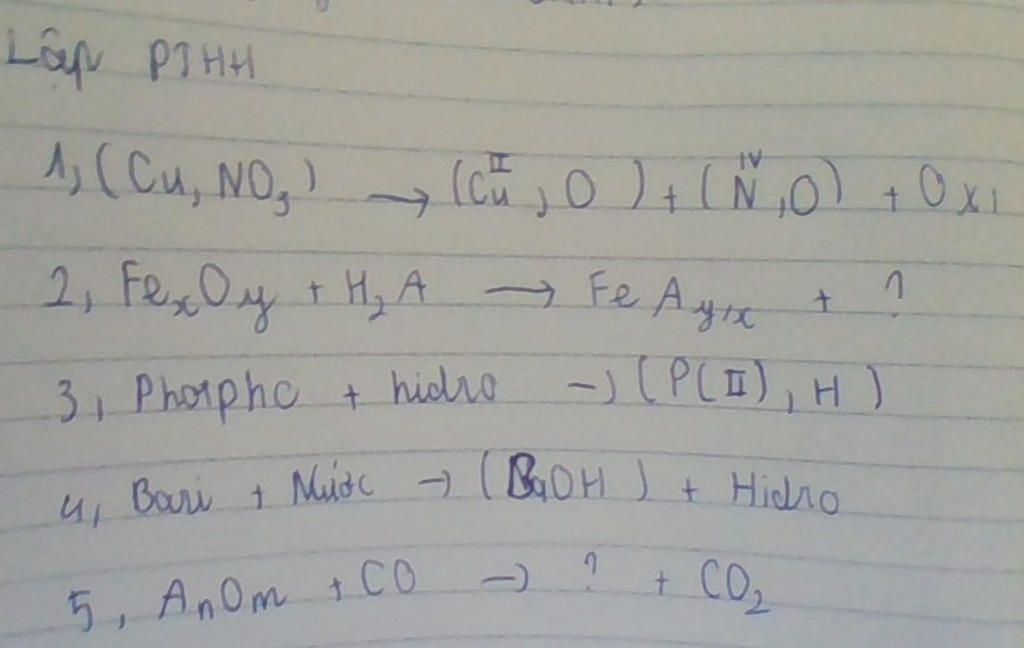 Lập PTHH
1, (Cu, NO₃) → (Cu^II, O) + (N^IV, O) + Oxi
2, FeₓOy + H₂A → FeA y/x + ?
3, Phospho + hidro → (P(II), H)
4, Bari + Nước → (BaOH) + Hidro
5, AnOm + CO → ? + CO₂